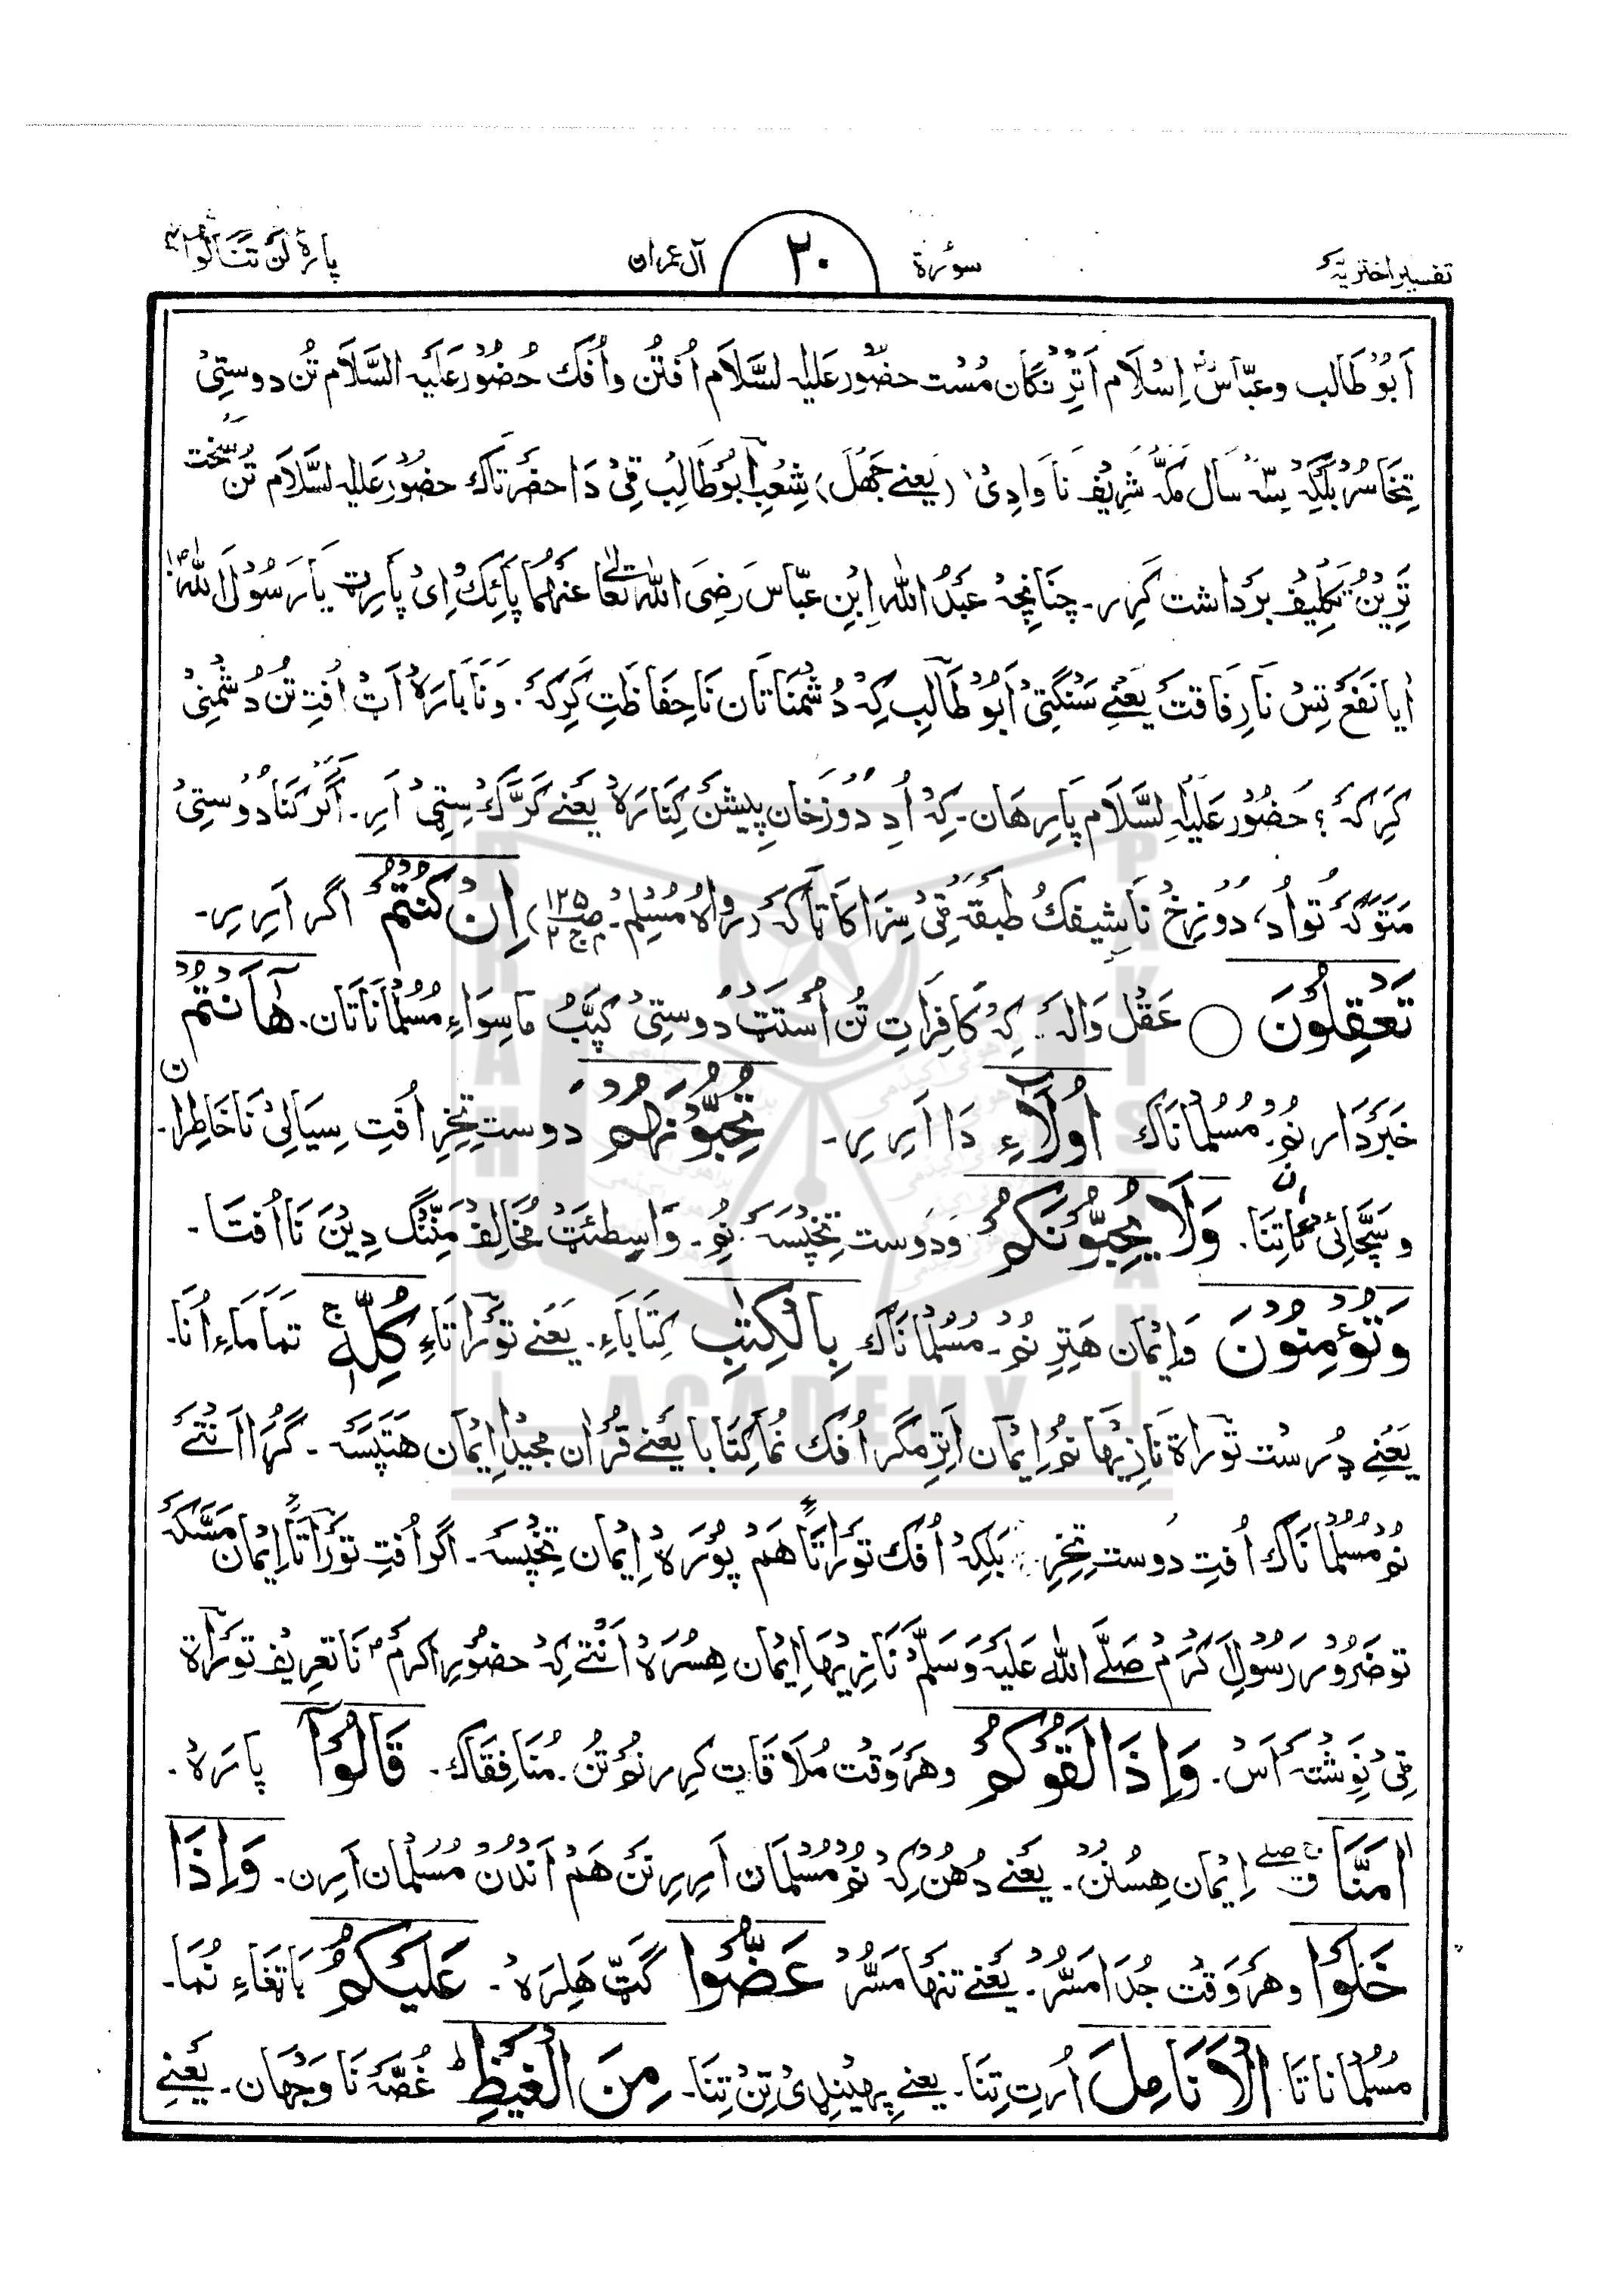 تفسیر اختریہ
سوُرة
٢٠
آل عمران
پارهٔ لَنْ تَنَالُوا
اَبُو طَالب و عبّاس اِسْلَام اَتِرْنگان مُسْت حضُور عَلیہ السَّلَام اُفتُن و اُفک حُضُوْر عَلَیہ السَّلَام تُن دوستِیْ
تِخَاسُر بَلْکِہْ سِہ سَال مَکَّہ شَرِیْف نَا وَادِیْ (یَعنے جَھَل) شِعْبِ اَبُوْ طَالِب ٹی دَا حضرَتَاک حضُوْر عَلیہ السَّلَام تُن سَخْت
تَرِیْن تَکلِیْف بَرْدَاشت کَرِر۔ چَنَانچِہْ عَبْدُ اللّٰه اِبْنِ عَبَّاس رَضِیَ اللّٰه تَعَالٰے عَنْہُمَا پَائِک اِیْ پَارِٹ یَا رَسُوْلَ اللّٰه
اٰیا نَفَعْ تِسْ نَا رِفَاقت یَعْنِے سَنْگَتِیْ اَبُو طَالِب کِہْ دُشْمنَاتَان نَا حِفَاظَتِ کَرِکَہ. وَ نَا بَارَہ اَٹ اُفتِ تُن دُشْمنِیْ
کَرِکَہ ؟ حُضُوْر عَلَیہِ السَّلَام پَارِ ھَان۔ کِہْ اُدِ دُوْزخَان پِیشَن کِنَارَہ یعَنے کَرَّک سِتِیْ اَرِ۔ اَگَر کَنَا دُوْستِیْ
مَتَوَکَہ تُو اُد، دُوْزِخْ نَا شِیفک طَبقَہ ٹِیْ سِزَا کَاتَاکَہ (رواہُ مُسْلِمْ۔ ص١٢٥ ج٢) اِنْ كُنْتُمْ اگر اَرِیرِ۔
تَعْقِلُوْنَ ○ عَقْل وَالہ. کِہْ کَافِرَاتِ تُن اُسْتَتْ دُوستِیْ کپَّبُ مَا سِوَاءِ مُسْلمَانَاتَان. هٰٓاَنْتُمْ
خبَردَار نُم۔ مُسْلمانَاک اُولَآءِ دَا اَرِیرِ۔ تُحِبُّوْنَهُمْ دُوست تِخِرِ اُفتِ سِیَالِیْ نَا خَاطِرا۔
و سَچَّائِیْ نَا تِنَا. وَلَا يُحِبُّوْنَكُمْ وَ دوست تِخپَسَہ نُمِ۔ وَاسِطئَتْ مُخَالِفْ مَنِّنْگ دِیْن نَا اُفتَا۔
وَتُؤْمِنُوْنَ وَ اِیْمَان هَتِرِ نُم۔ مُسْلمانَاک بِالْكِتٰبِ کِتَابَاءِ۔ یَعنے تَوْرَاتَاءِ كُلِّهٖ تَمَامَاءِ اُنَا۔
یَعْنِے دُرُست تَوْرَاة نَا زِیْہَا نُم اِیْمَان اَتِرِ مگر اُفک نُمَا کِتَابا یَعنے قُرْاٰن مجِیْدا اِیْمَان هَتپَسَہ۔ گُڑَا اَنْتَے
نُم مُسْلمَانَاک اُفتِ دُوست تِخِرِ بَلکِہْ اُفک تَوْرَاتَا هَمْ پُوْرَہْ اِیْمَان تِخپَسَہ۔ اگر اُفتِ تَوْرَاتَا اِیْمَان مَسَّکَہ
تو ضَرُوْر رَسُوْلِ اکرَمْ صَلَّے اللّٰهُ عَلَیہ وَسَلَّمْ نَا زِیْہَا اِیْمَان هِسُرَہْ اَنْتَے کِہْ حضُوْر اکرَمْ نَا تعرِیْف تَوْرَاة
ٹِیْ نِوِشْتہ اَسْ. وَاِذَا لَقُوْكُمْ و ھَر وَقت مُلَاقَات کِرِر نُم تُن۔ مُنَافِقَاک۔ قَالُوْٓا پَارَہْ۔
اٰمَنَّا اِیْمَان هِسُنُن۔ یعنے دُھُن کِہْ نُم مُسْلمَان اَرِیرِ نَن هَمْ اَندُن مُسْلمَان اَرِن۔ وَاِذَا
خَلَوْا و ھَر وَقت جُدا مَسُّر۔ یعَنے تنہا مَسُّرْ عَضُّوْا گَٹ هَلِرَہْ۔ عَلَيْكُمْ بَاتغَاءِ نُمَا۔
مُسْلمانَاتَا الْاَنَامِلَ اُرتِ تِنَا۔ یعنے پِھِینْڈِیْ تِن تِنَا۔ مِنَ الْغَيْظِ غُصَّہ نَا وَجْھَان۔ یَعْنِے